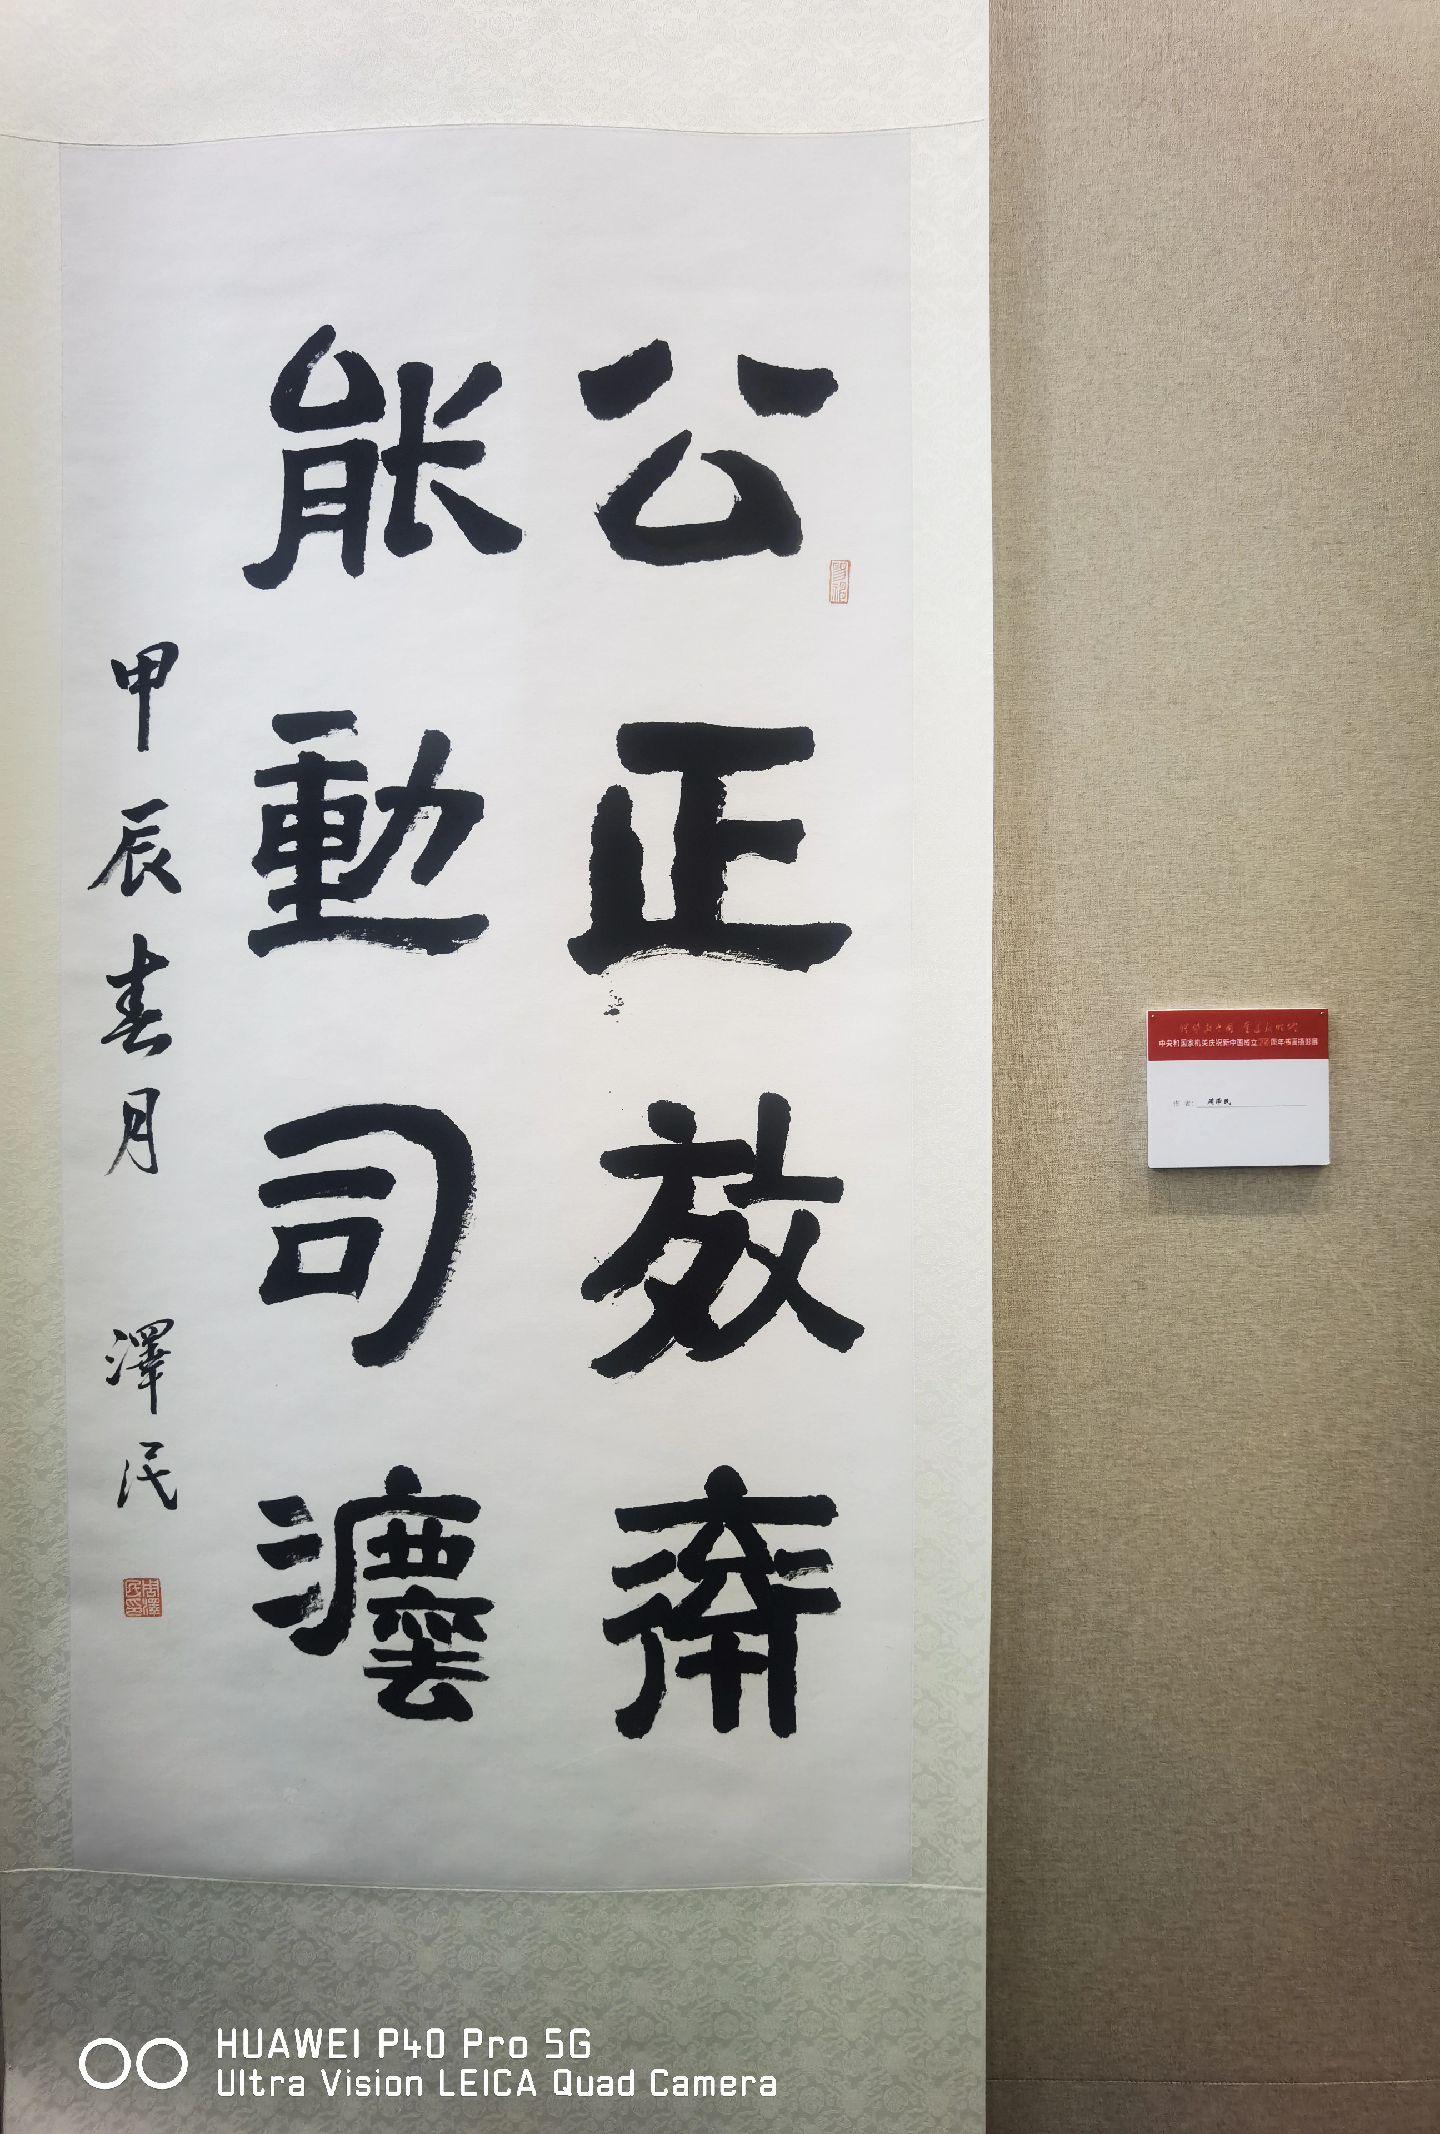 公正效率
能動司灋
甲辰春月 澤民
周澤民印
中央和国家机关庆祝新中国成立75周年书画摄影展
作者: 周泽民
HUAWEI P40 Pro 5G
Ultra Vision LEICA Quad Camera